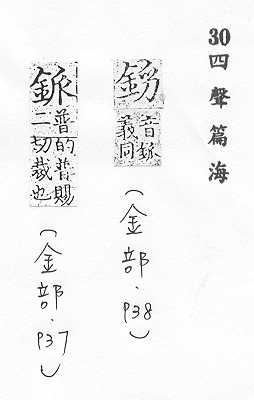 30四聲篇海
音釽
義同
(金部.P38)
釽
普的普賜
二切裁也
(金部.P37)